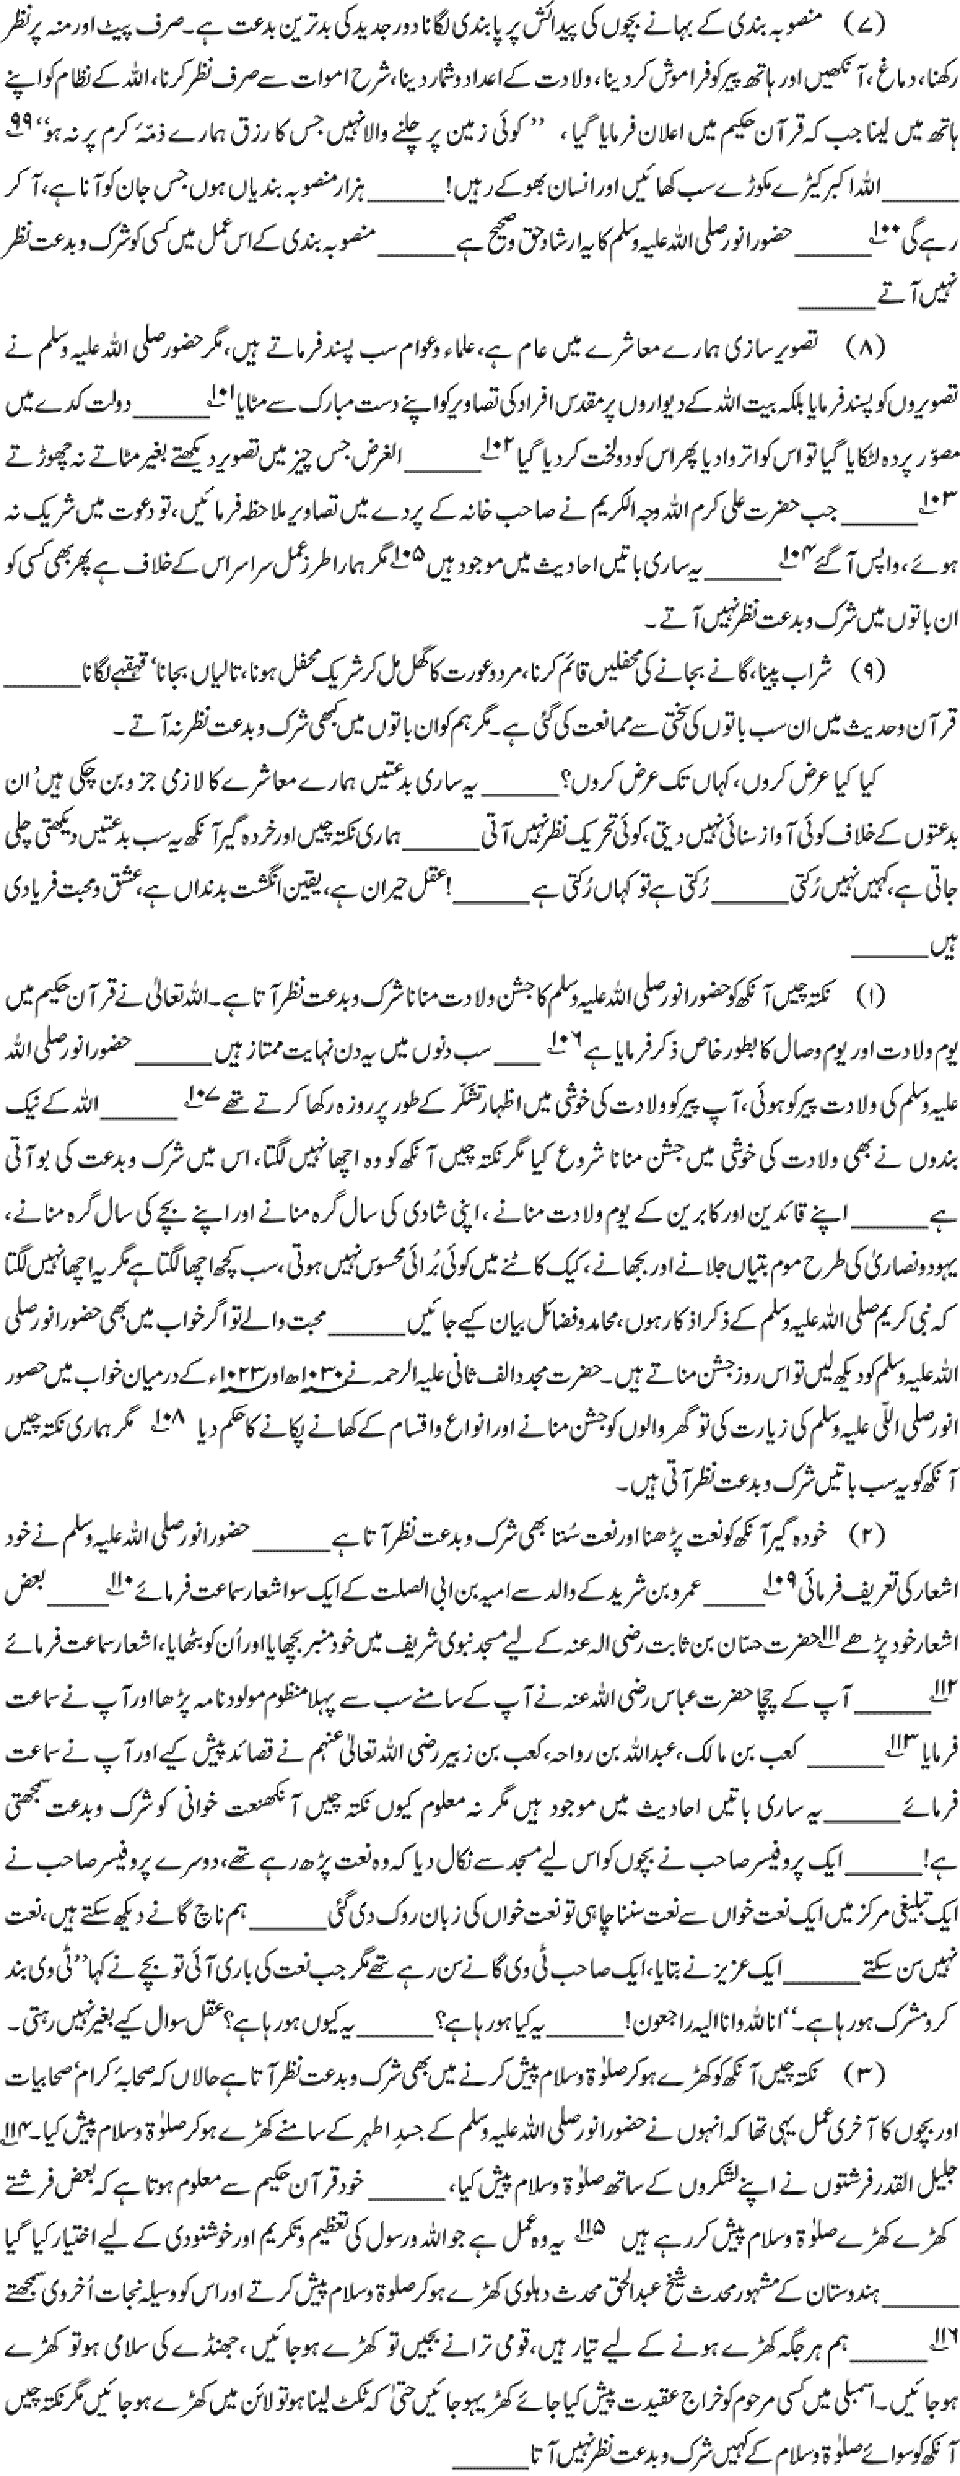 (۷) منصوبہ بندی کے بہانے بچوں کی پیدائش پر پابندی لگانا دور جدید کی بدترین بدعت ہے۔ صرف پیٹ اور منہ پر نظر
رکھنا، دماغ، آنکھیں اور ہاتھ پیر کو فراموش کر دینا، ولادت کے اعداد و شمار دینا، شرح اموات سے صرف نظر کرنا، اللہ کے نظام کو اپنے
ہاتھ میں لینا جب کہ قرآن حکیم میں اعلان فرمایا گیا، ’’کوئی زمین پر چلنے والا نہیں جس کا رزق ہمارے ذمّۂ کرم پر نہ ہو‘‘ ۹۹
______ اللہ اکبر کیڑے مکوڑے سب کھائیں اور انسان بھوکے رہیں! ______ ہزار منصوبہ بندیاں ہوں جس جان کو آنا ہے، آ کر
رہے گی ۱۰۰ ______ حضور انور صلی اللہ علیہ وسلم کا یہ ارشاد حق و صحیح ہے ______ منصوبہ بندی کے اس عمل میں کسی کو شرک و بدعت نظر
نہیں آتے ______
(۸) تصویر سازی ہمارے معاشرے میں عام ہے، علماء و عوام سب پسند فرماتے ہیں، مگر حضور صلی اللہ علیہ وسلم نے
تصویروں کو پسند فرمایا بلکہ بیت اللہ کے دیواروں پر مقدس افراد کی تصاویر کو اپنے دست مبارک سے مٹایا ۱۰۱ ______ دولت کدے میں
مصوّر پردہ لٹکایا گیا تو اس کو اتروا دیا پھر اس کو دولخت کر دیا گیا ۱۰۲ ______ الغرض جس چیز میں تصویر دیکھتے بغیر مٹائے نہ چھوڑتے
۱۰۳ ______ جب حضرت علی کرم اللہ وجہ الکریم نے صاحب خانہ کے پردے میں تصاویر ملاحظہ فرمائیں، تو دعوت میں شریک نہ
ہوئے، واپس آ گئے ۱۰۴ ______ یہ ساری باتیں احادیث میں موجود ہیں ۱۰۵ مگر ہمارا طرز عمل سراسر اس کے خلاف ہے پھر بھی کسی کو
ان باتوں میں شرک و بدعت نظر نہیں آتے۔
(۹) شراب پینا، گانے بجانے کی محفلیں قائم کرنا، مرد و عورت کا گھل مل کر شریک محفل ہونا، تالیاں بجانا‘ قہقہے لگانا ______
قرآن و حدیث میں ان سب باتوں کی سختی سے ممانعت کی گئی ہے۔ مگر ہم کو ان باتوں میں کبھی شرک و بدعت نظر نہ آتے۔
کیا کیا عرض کروں، کہاں تک عرض کروں؟ ______ یہ ساری بدعتیں ہمارے معاشرے کا لازمی جزو بن چکی ہیں‘ ان
بدعتوں کے خلاف کوئی آواز سنائی نہیں دیتی، کوئی تحریک نظر نہیں آتی ______ ہماری نکتہ چیں اور خردہ گیر آنکھ یہ سب بدعتیں دیکھتی چلی
جاتی ہے، کہیں نہیں رُکتی ______ رُکتی ہے تو کہاں رُکتی ہے ______! عقل حیران ہے، یقین انگشت بدنداں ہے، عشق و محبت فریادی
ہیں ______
(۱) نکتہ چیں آنکھ کو حضور انور صلی اللہ علیہ وسلم کا جشن ولادت منانا شرک و بدعت نظر آتا ہے۔ اللہ تعالیٰ نے قرآن حکیم میں
یوم ولادت اور یوم وصال کا بطور خاص ذکر فرمایا ہے ۱۰۶ ____ سب دنوں میں یہ دن نہایت ممتاز ہیں ______ حضور انور صلی اللہ
علیہ وسلم کی ولادت پیر کو ہوئی، آپ پیر کو ولادت کی خوشی میں اظہار تشکّر کے طور پر روزہ رکھا کرتے تھے ۱۰۷ ______ اللہ کے نیک
بندوں نے بھی ولادت کی خوشی میں جشن منانا شروع کیا مگر نکتہ چیں آنکھ کو وہ اچھا نہیں لگتا، اس میں شرک و بدعت کی بو آتی
ہے ______ اپنے قائدین اور کابرین کے یوم ولادت منانے، اپنی شادی کی سال گرہ منانے اور اپنے بچے کی سال گرہ منانے،
یہود و نصاریٰ کی طرح موم بتیاں جلانے اور بجھانے، کیک کاٹنے میں کوئی بُرائی محسوس نہیں ہوتی، سب کچھ اچھا لگتا ہے مگر یہ اچھا نہیں لگتا
کہ نبی کریم صلی اللہ علیہ وسلم کے ذکر اذکار ہوں، محامد و فضائل بیان کیے جائیں ______ محبت والے تو اگر خواب میں بھی حضور انور صلی
اللہ علیہ وسلم کو دیکھ لیں تو اس روز جشن مناتے ہیں۔ حضرت مجدد الف ثانی علیہ الرحمہ نے ۱۰۳۰ھ اور ۱۰۲۳ء کے درمیان خواب میں حصور
انور صلی اللّی علیہ وسلم کی زیارت کی تو گھر والوں کو جشن منانے اور انواع و اقسام کے کھانے پکانے کا حکم دیا ۱۰۸ مگر ہماری نکتہ چیں
آنکھ کو یہ سب باتیں شرک و بدعت نظر آتی ہیں۔
(۲) خودہ گیر آنکھ کو نعت پڑھنا اور نعت سُننا بھی شرک و بدعت نظر آتا ہے ______ حضور انور صلی اللہ علیہ وسلم نے خود
اشعار کی تعریف فرمائی ۱۰۹ ______ عمرو بن شرید کے والد سے امیہ بن ابی الصلت کے ایک سو اشعار سماعت فرمائے ۱۱۰ ______ بعض
اشعار خود پڑھے ۱۱۱ حضرت حسّان بن ثابت رضی الہ عنہ کے لیے مسجد نبوی شریف میں خود منبر بچھایا اور اُن کو بٹھایا، اشعار سماعت فرمائے
۱۱۲ ______ آپ کے چچا حضرت عباس رضی اللہ عنہ نے آپ کے سامنے سب سے پہلا منظوم مولود نامہ پڑھا اور آپ نے ساعت
فرمایا ۱۱۳ ______ کعب بن مالک، عبداللہ بن رواحہ، کعب بن زبیر رضی اللہ تعالیٰ عنہم نے قصائد پیش کیے اور آپ نے ساعت
فرمائے ______ یہ ساری باتیں احادیث میں موجود ہیں مگر نہ معلوم کیوں نکتہ چیں آنکھنعت خوانی کو شرک و بدعت سمجھتی
ہے! ______ ایک پروفیسر صاحب نے بچوں کو اس لیے مسجد سے نکال دیا کہ وہ نعت پڑھ رہے تھے، دوسرے پروفیسر صاحب نے
ایک تبلیغی مرکز میں ایک نعت خواں سے نعت سننا چاہی تو نعت خواں کی زبان روک دی گئی ______ ہم ناچ گانے دیکھ سکتے ہیں، نعت
نہیں سن سکتے ______ ایک عزیز نے بتایا، ایک صاحب ٹی وی گانے سن رہے تھے مگر جب نعت کی باری آئی تو بچے نے کہا ’’ٹی وی بند
کرو مشرک ہو رہا ہے۔‘‘ انا للہ وانا الیہ راجعون! ______ یہ کیا ہو رہا ہے؟ ______ یہ کیوں ہو رہا ہے؟ عقل سوال کیے بغیر نہیں رہتی۔
(۳) نکتہ چیں آنکھ کو کھڑے ہو کر صلوٰۃ و سلام پیش کرنے میں بھی شرک و بدعت نظر آتا ہے حالاں کہ صحابۂ کرام‘ صحابیات
اور بچوں کا آخری عمل یہی تھا کہ انہوں نے حضور انور صلی اللہ علیہ وسلم کے جسدِ اطہر کے سامنے کھڑے ہو کر صلوٰۃ و سلام پیش کیا۔ ۱۱۴
جلیل القدر فرشتوں نے اپنے لشکروں کے ساتھ صلوٰۃ و سلام پیش کیا، ______ خود قرآن حکیم سے معلوم ہوتا ہے کہ بعض فرشتے
کھڑے کھڑے صلوٰۃ و سلام پیش کر رہے ہیں ۱۱۵ یہ وہ عمل ہے جو اللہ و رسول کی تعظیم و تکریم اور خوشنودی کے لیے اختیار کیا گیا
______ ہندوستان کے مشہور محدث شیخ عبدالحق محدث دہلوی کھڑے ہو کر صلوٰۃ و سلام پیش کرتے اور اس کو وسیلہ نجات اُخروی سمجھتے
۱۱۶ ______ ہم ہر جگہ کھڑے ہونے کے لیے تیار ہیں، قومی ترانے بجیں تو کھڑے ہو جائیں، جھنڈے کی سلامی ہو تو کھڑے
ہو جائیں۔ اسمبلی میں کسی مرحوم کو خراج عقیدت پیش کیا جائے کھڑ یہو جائیں حتیٰ کہ ٹکٹ لینا ہو تو لائن میں کھڑے ہو جائیں مگر نکتہ چیں
آنکھ کو سوائے صلوٰۃ و سلام کے کہیں شرک و بدعت نظر نہیں آتا ______